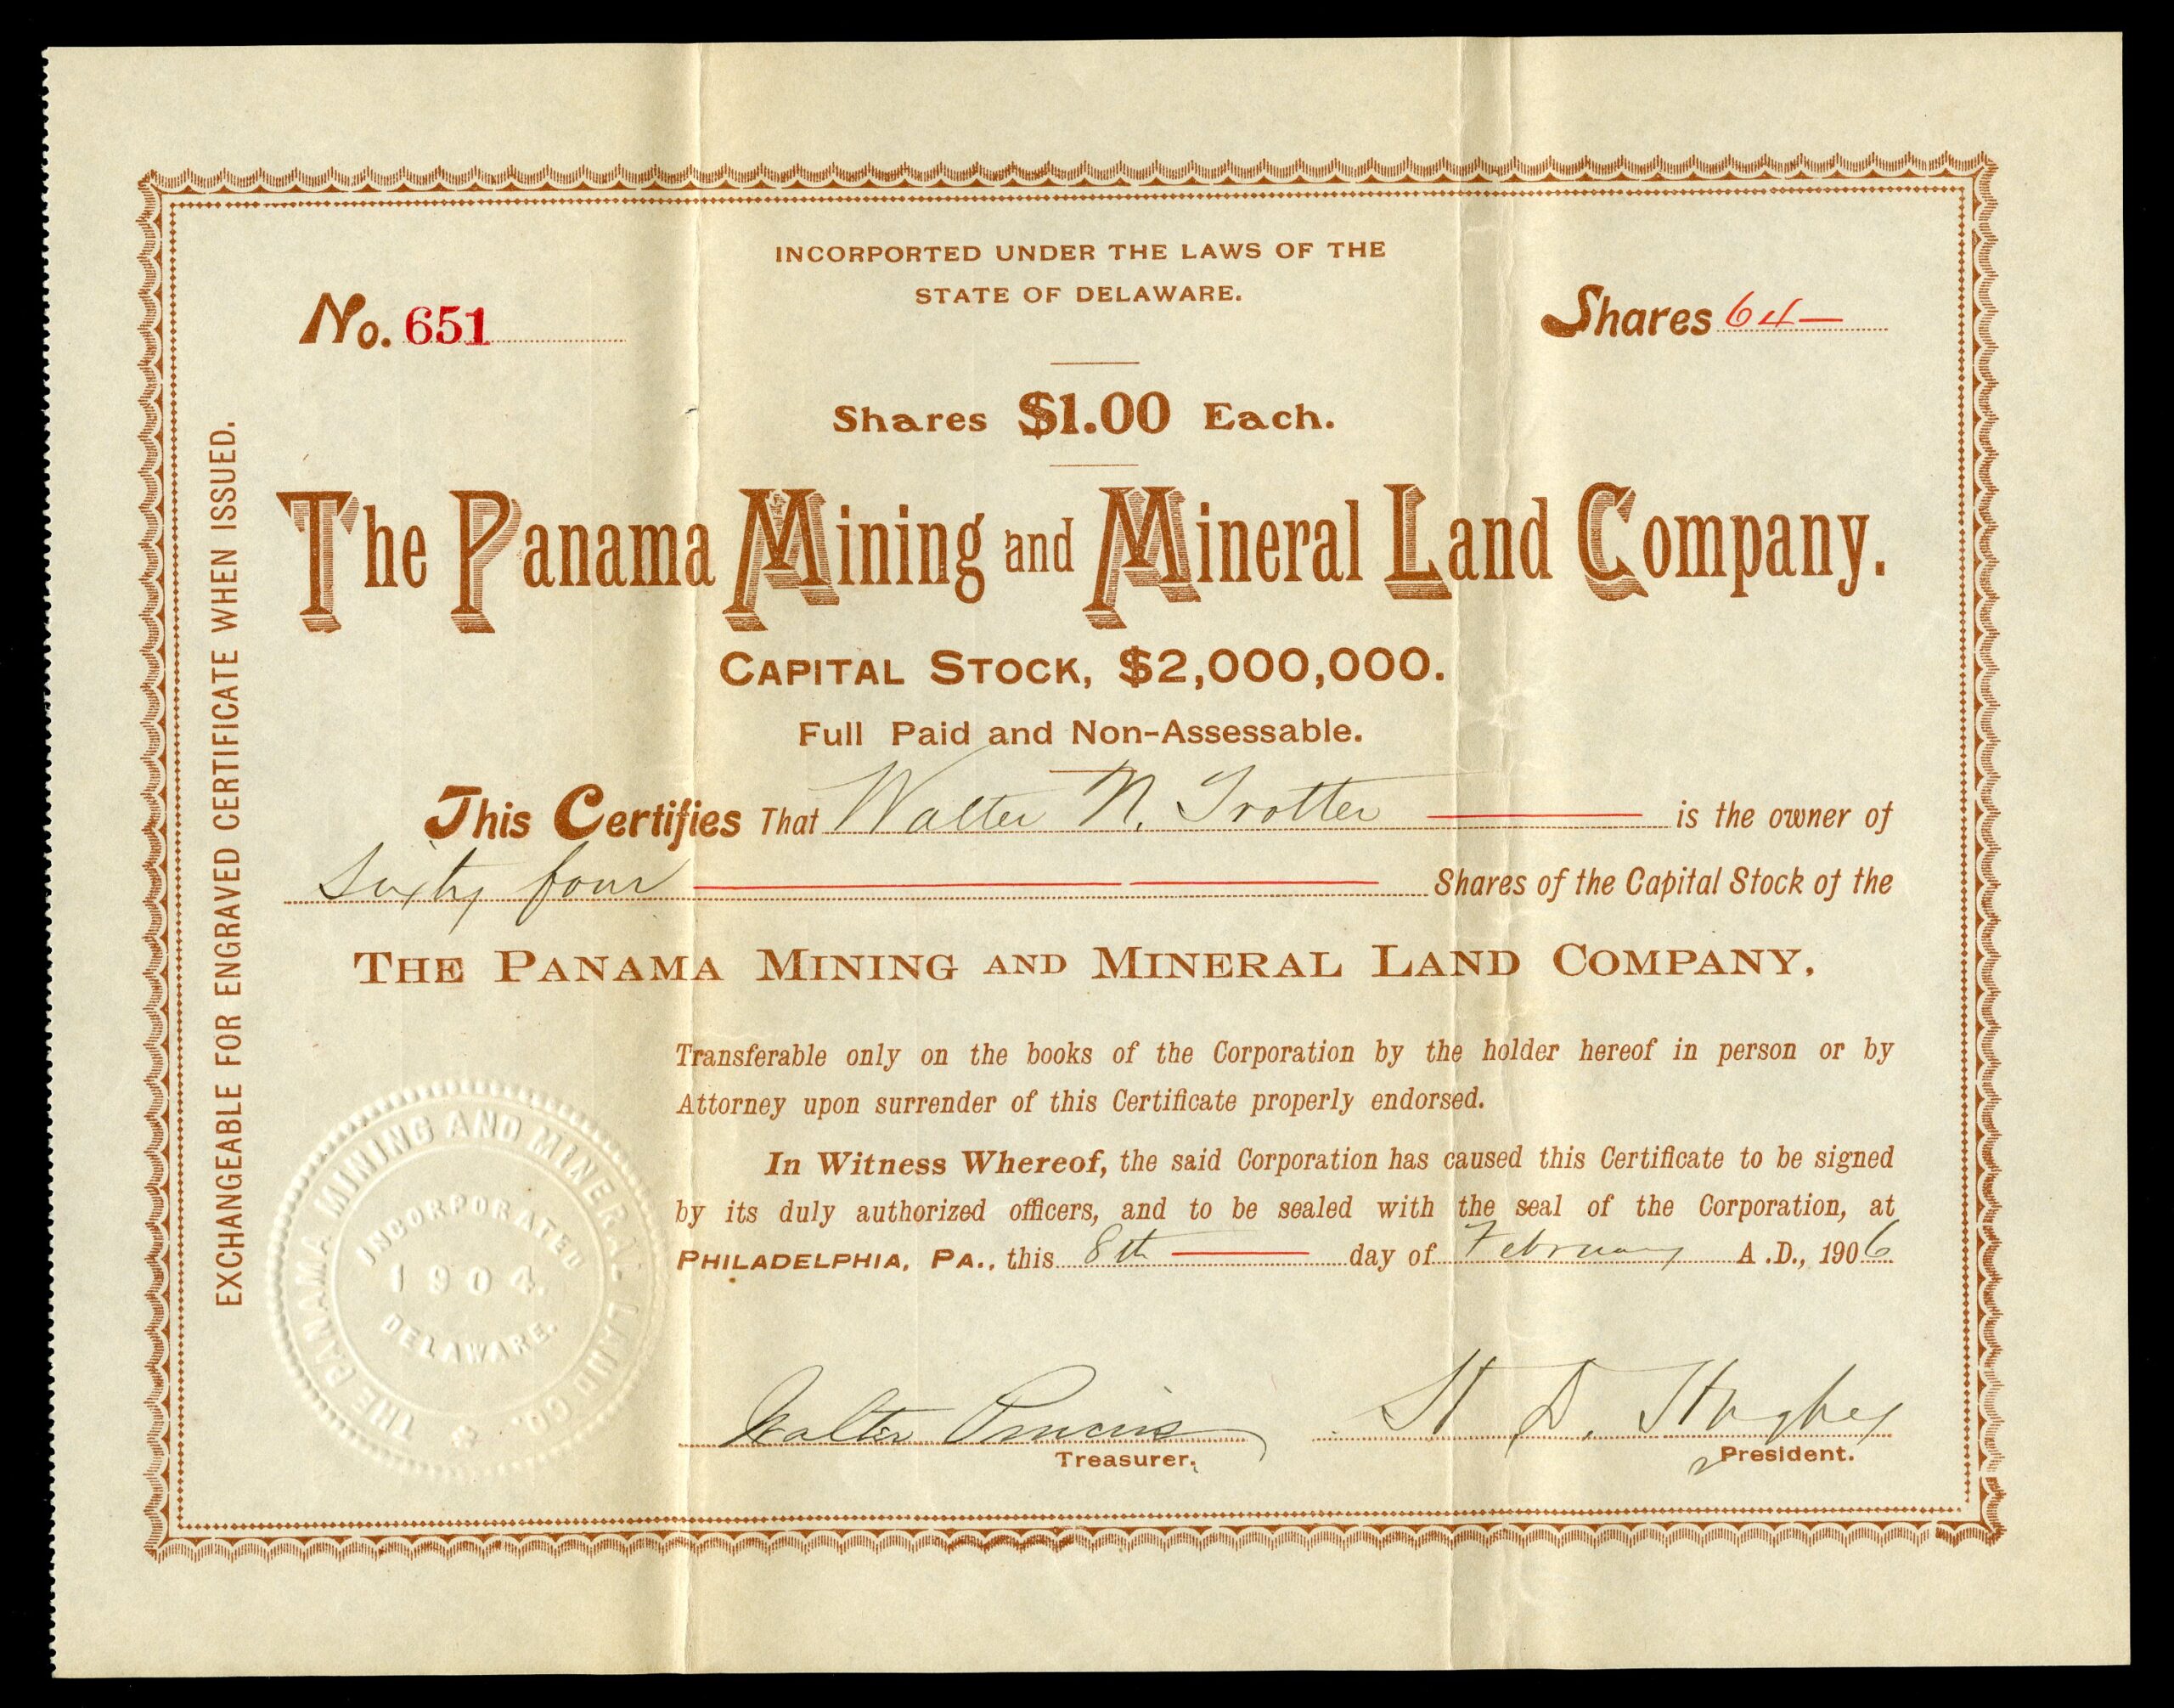 INCORPORTED UNDER THE LAWS OF THE
STATE OF DELAWARE.
No. 651
Shares 64—
Shares $1.00 Each.
The Panama Mining and Mineral Land Company.
CAPITAL STOCK, $2,000,000.
Full Paid and Non-Assessable.
This Certifies That Walter N. Trotter is the owner of
Sixty four Shares of the Capital Stock of the
THE PANAMA MINING AND MINERAL LAND COMPANY.
Transferable only on the books of the Corporation by the holder hereof in person or by
Attorney upon surrender of this Certificate properly endorsed.
In Witness Whereof, the said Corporation has caused this Certificate to be signed
by its duly authorized officers, and to be sealed with the seal of the Corporation, at
PHILADELPHIA, PA., this 8th day of February A.D., 1906
Walter
Treasurer.
H. D. Hughes
President.
EXCHANGEABLE FOR ENGRAVED CERTIFICATE WHEN ISSUED.
THE PANAMA MINING AND MINERAL LAND CO.
INCORPORATED
1904.
DELAWARE.